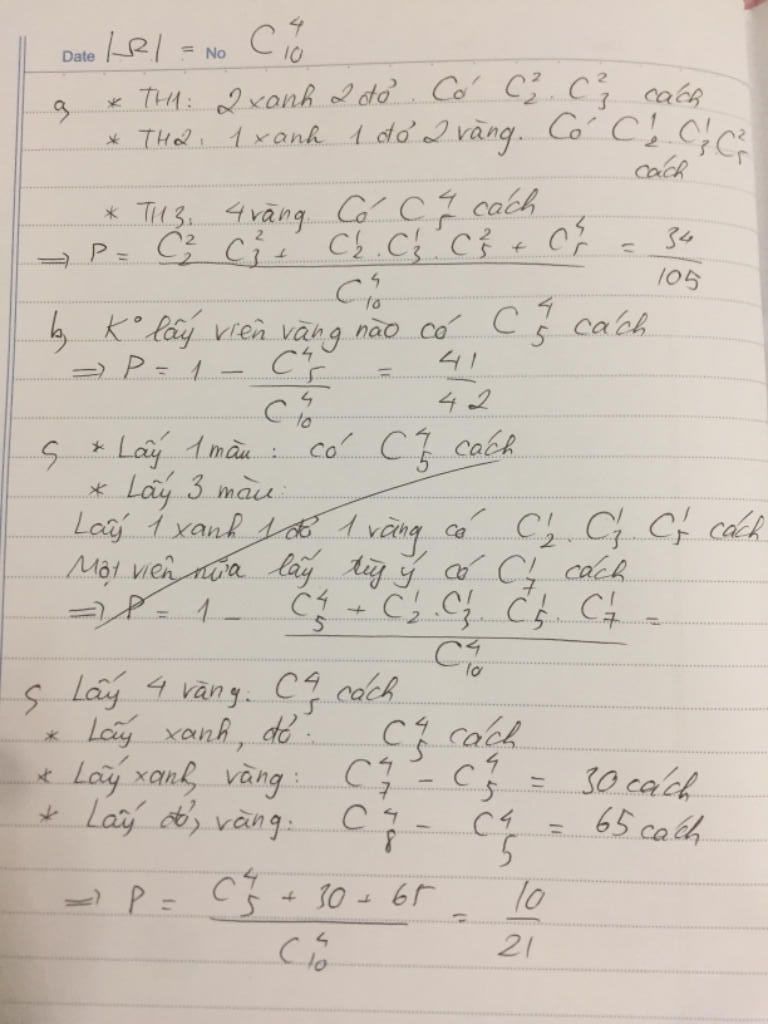 Date |Ω| = No C₁₀⁴
a, * TH1: 2 xanh 2 đỏ. Có C₂² . C₃² cách
* TH2: 1 xanh 1 đỏ 2 vàng. Có C₂¹ . C₃¹ C₅²
cách
* TH3: 4 vàng. Có C₅⁴ cách
=> P = (C₂² C₃² + C₂¹ . C₃¹ . C₅² + C₅⁴) / C₁₀⁴ = 34/105
b, K° lấy viên vàng nào có C₅⁴ cách
=> P = 1 - C₅⁴ / C₁₀⁴ = 41/42
c, * Lấy 1 màu: có C₅⁴ cách
* Lấy 3 màu:
Lấy 1 xanh 1 đỏ 1 vàng có C₂¹ . C₃¹ . C₅¹ cách
Một viên nữa lấy tùy ý có C₇¹ cách
=> P = 1 - (C₅⁴ + C₂¹ . C₃¹ . C₅¹ . C₇¹) / C₁₀⁴ =
c, Lấy 4 vàng. C₅⁴ cách
* Lấy xanh, đỏ: C₅⁴ cách
* Lấy xanh, vàng: C₇⁴ - C₅⁴ = 30 cách
* Lấy đỏ, vàng: C₈⁴ - C₅⁴ = 65 cách
=> P = (C₅⁴ + 30 + 65) / C₁₀⁴ = 10/21